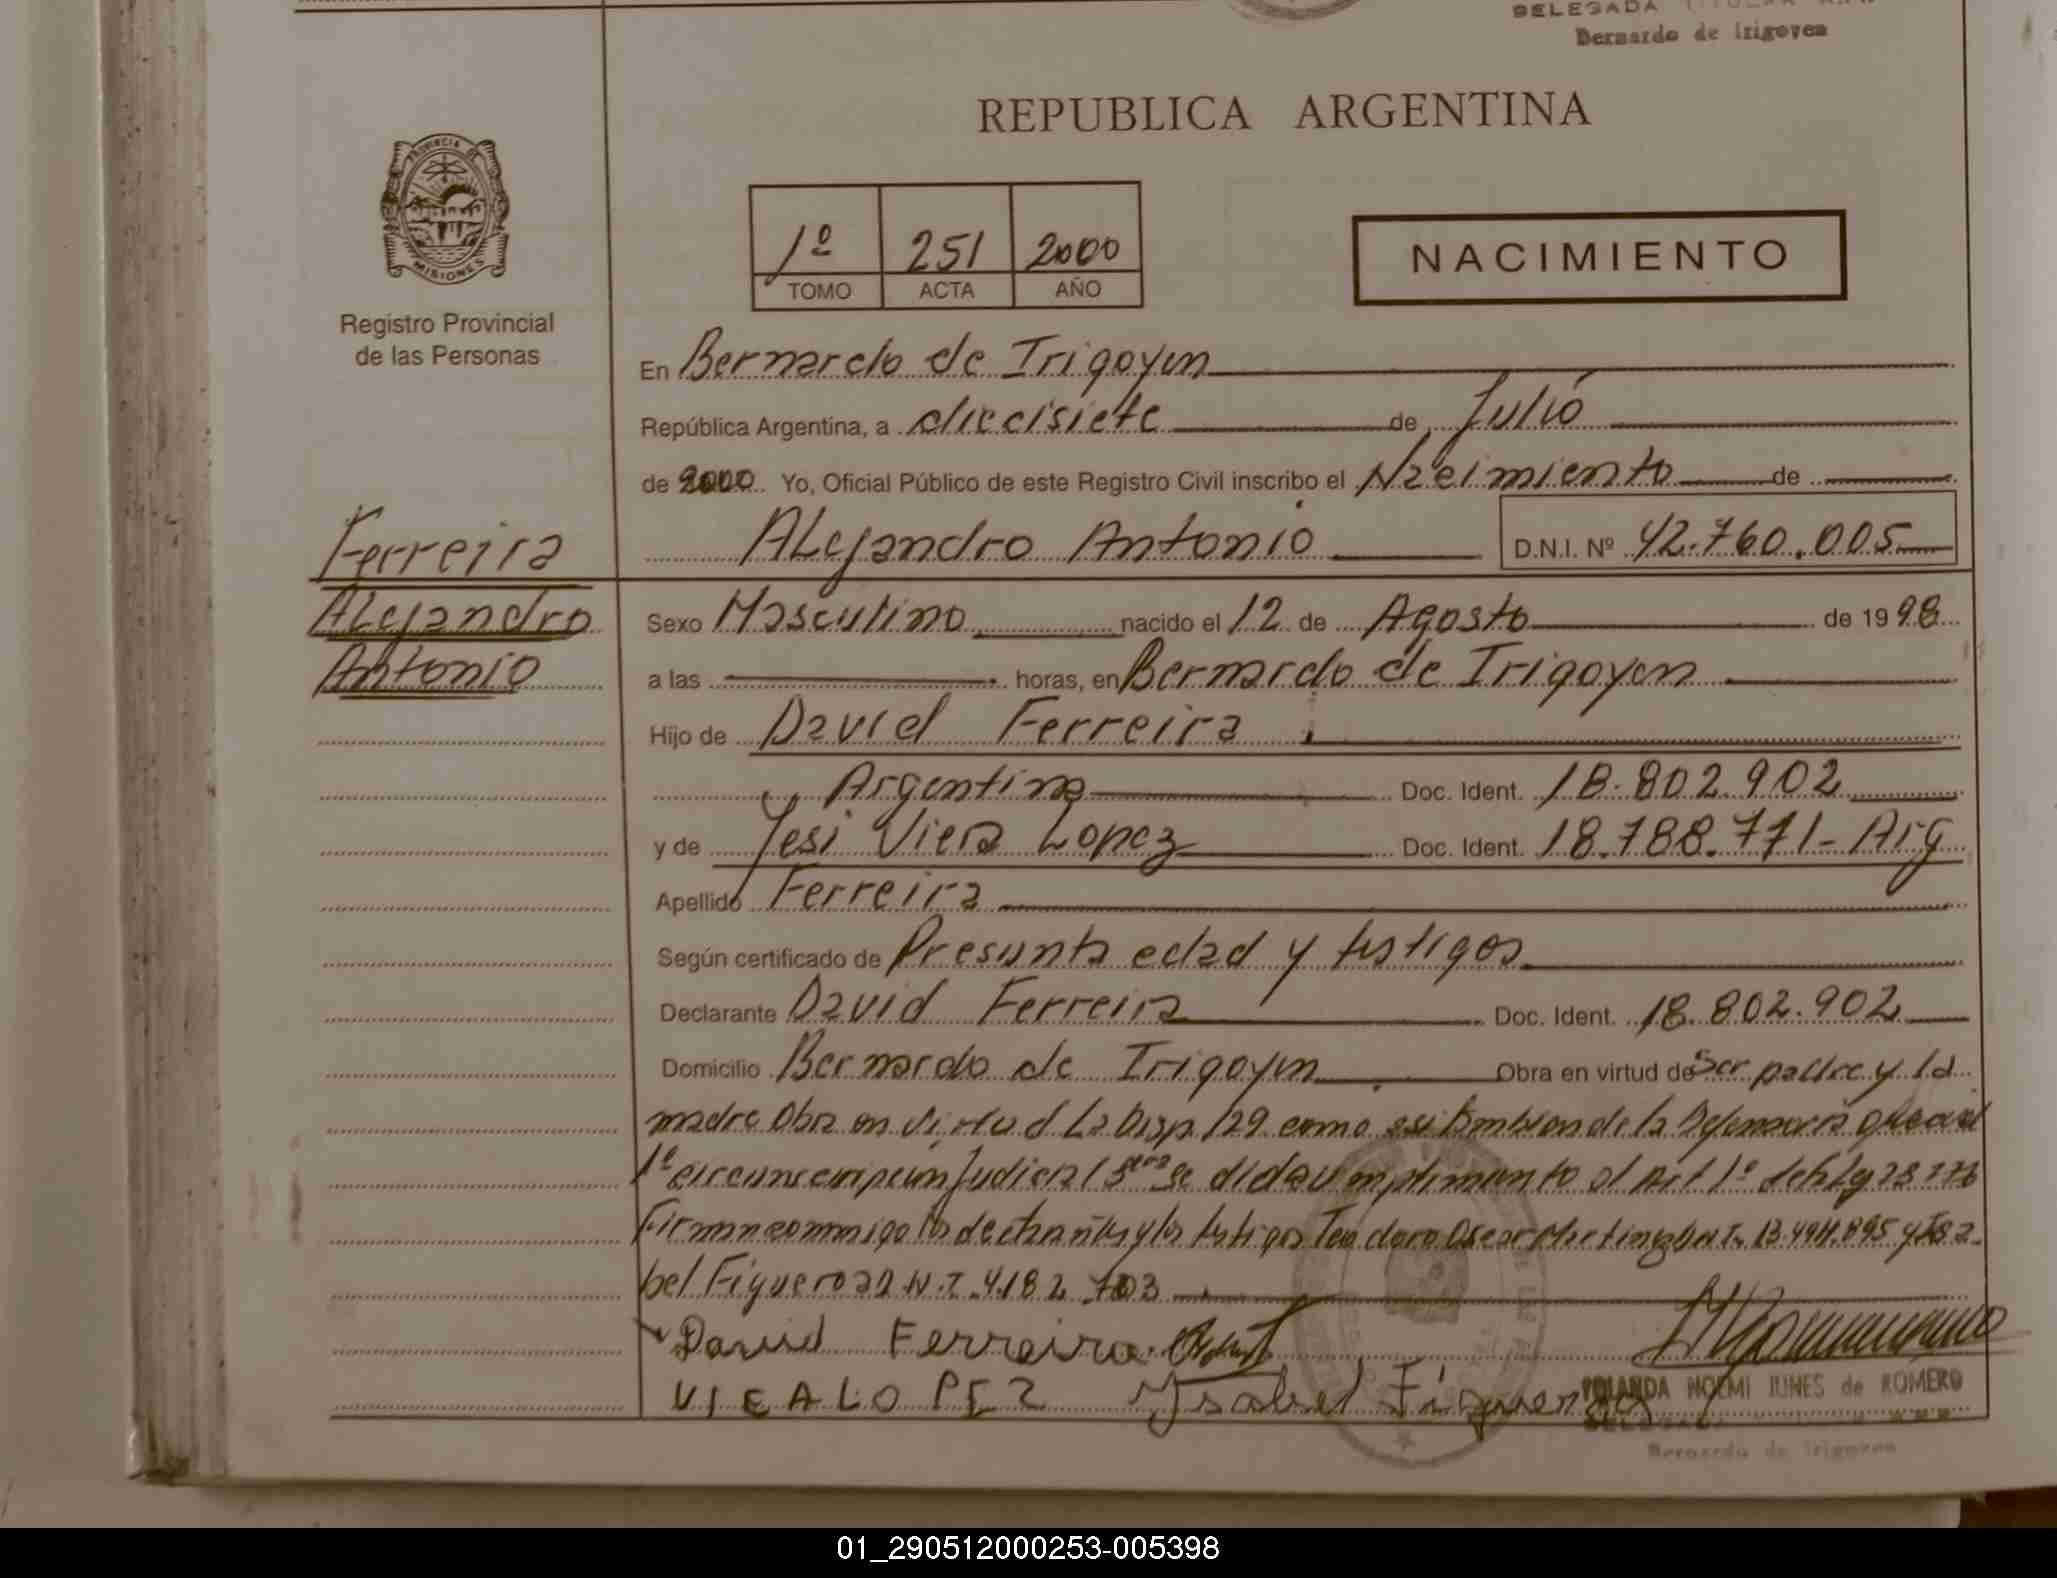 DELEGADA TITULAR
Bernardo de Irigoyen
REPUBLICA ARGENTINA
PROVINCIA DE
MISIONES
Registro Provincial
de las Personas
1º 251 2000
TOMO ACTA AÑO
NACIMIENTO
En Bernardo de Irigoyen
República Argentina, a diecisiete de Julio
de 2000 Yo, Oficial Público de este Registro Civil inscribo el Nacimiento de
Alejandro Antonio D.N.I. Nº 42.760.005
Ferreira
Alejandro
Antonio
Sexo Masculino nacido el 12 de Agosto de 1998
a las horas, en Bernardo de Irigoyen
Hijo de David Ferreira
Argentina Doc. Ident. 18.802.902
y de Yesi Viera Lopez Doc. Ident. 18.788.771 - Arg
Apellido Ferreira
Según certificado de Presunta edad y testigos
Declarante David Ferreira Doc. Ident. 18.802.902
Domicilio Bernardo de Irigoyen Obra en virtud de Ser padre y la
madre Obra en virtud d La Disp. 129 como asi tambien de la
1º circunscripcion Judicial se dido cumplimiento al Art 1º
Firman conmigo los declarantes y los testigos Teodoro Oscar Martinez y Isa-
bel Figueroa D.N.I. 4.182.703
David Ferreira
VIEALOPEZ Ysabel Figueroa
YOLANDA NOEMI IUNES de ROMERO
DELEGADA
Bernardo de Irigoyen
01_290512000253-005398